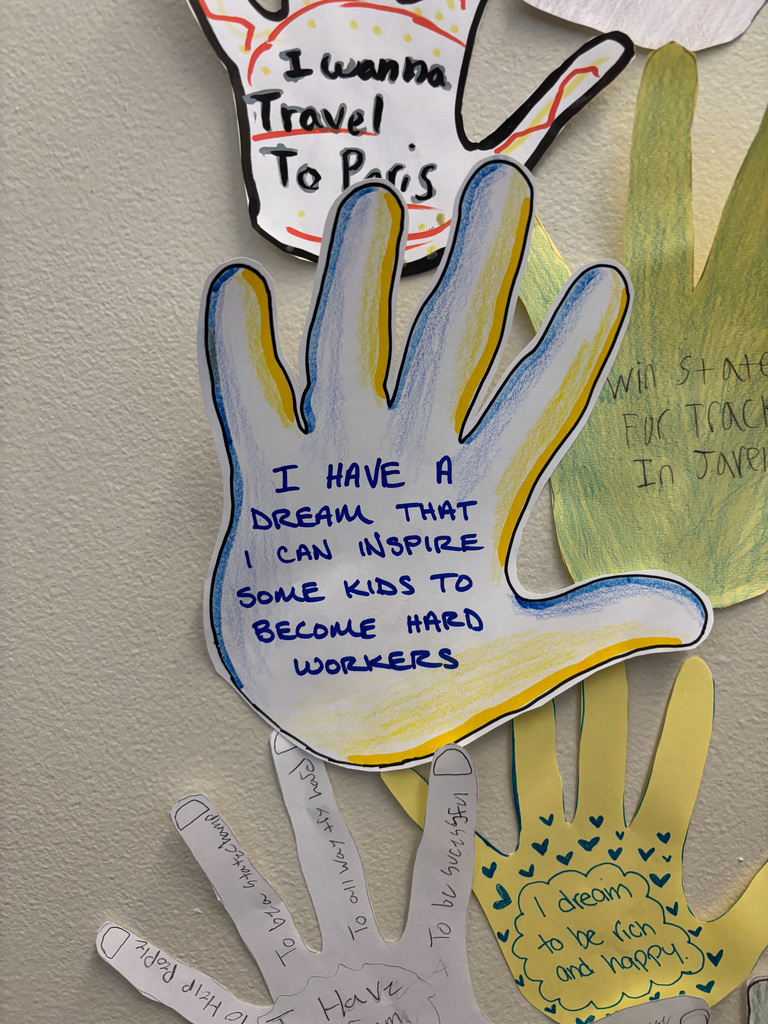 I wanna
Travel
To Paris
win state
For Track
In
I HAVE A
DREAM THAT
I CAN INSPIRE
SOME KIDS TO
BECOME HARD
WORKERS
To Help People
To be a state champ
To all ways try hard
To be successful
I Have
I dream
to be rich
and happy.